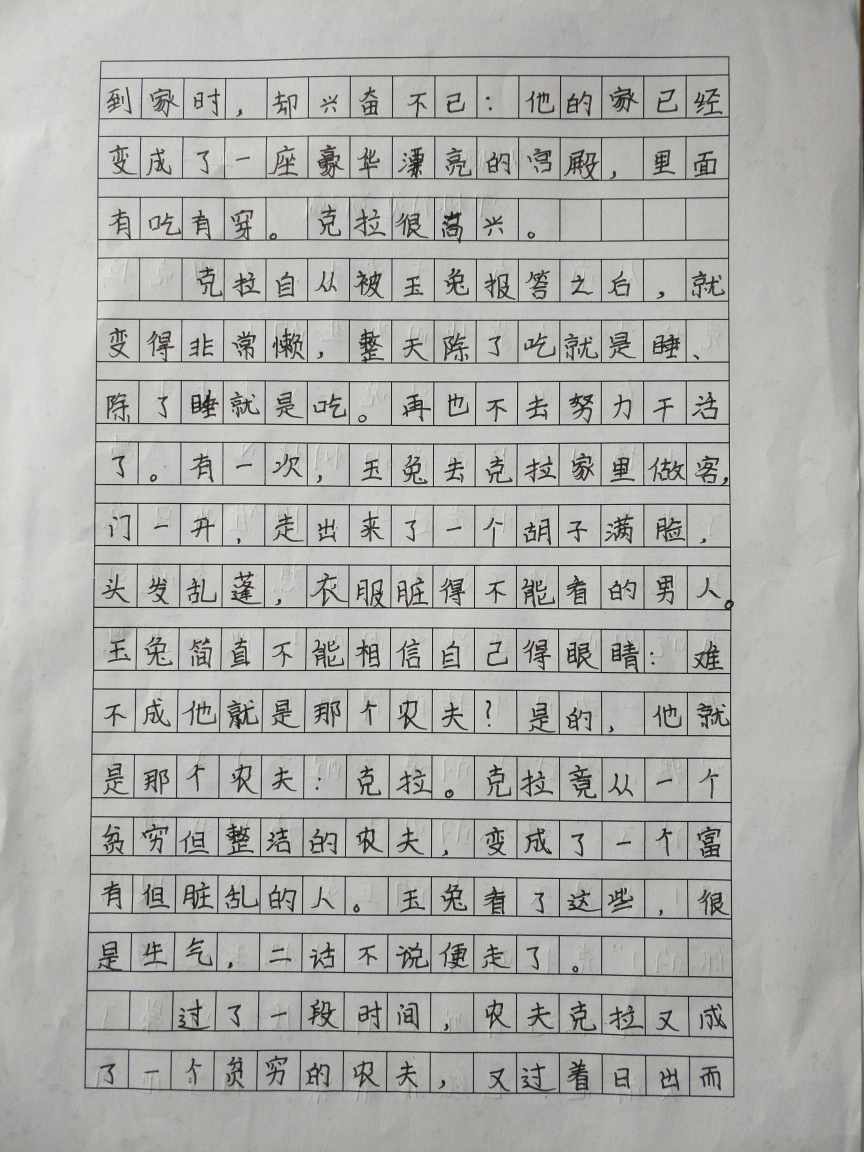 到家时,却兴奋不己:他的家已经
变成了一座豪华漂亮的宫殿,里面
有吃有穿。克拉很高兴。
克拉自从被玉兔报答之后,就
变得非常懒,整天除了吃就是睡、
除了睡就是吃。再也不去努力干活
了。有一次,玉兔去克拉家里做客,
门一开,走出来了一个胡子满脸,
头发乱蓬,衣服脏得不能看的男人。
玉兔简直不能相信自己得眼睛:难
不成他就是那个农夫?是的,他就
是那个农夫:克拉。克拉竟从一个
贫穷但整洁的农夫,变成了一个富
有但脏乱的人。玉兔看了这些,很
是生气,二话不说便走了。
过了一段时间,农夫克拉又成
了一个贫穷的农夫,又过着日出而